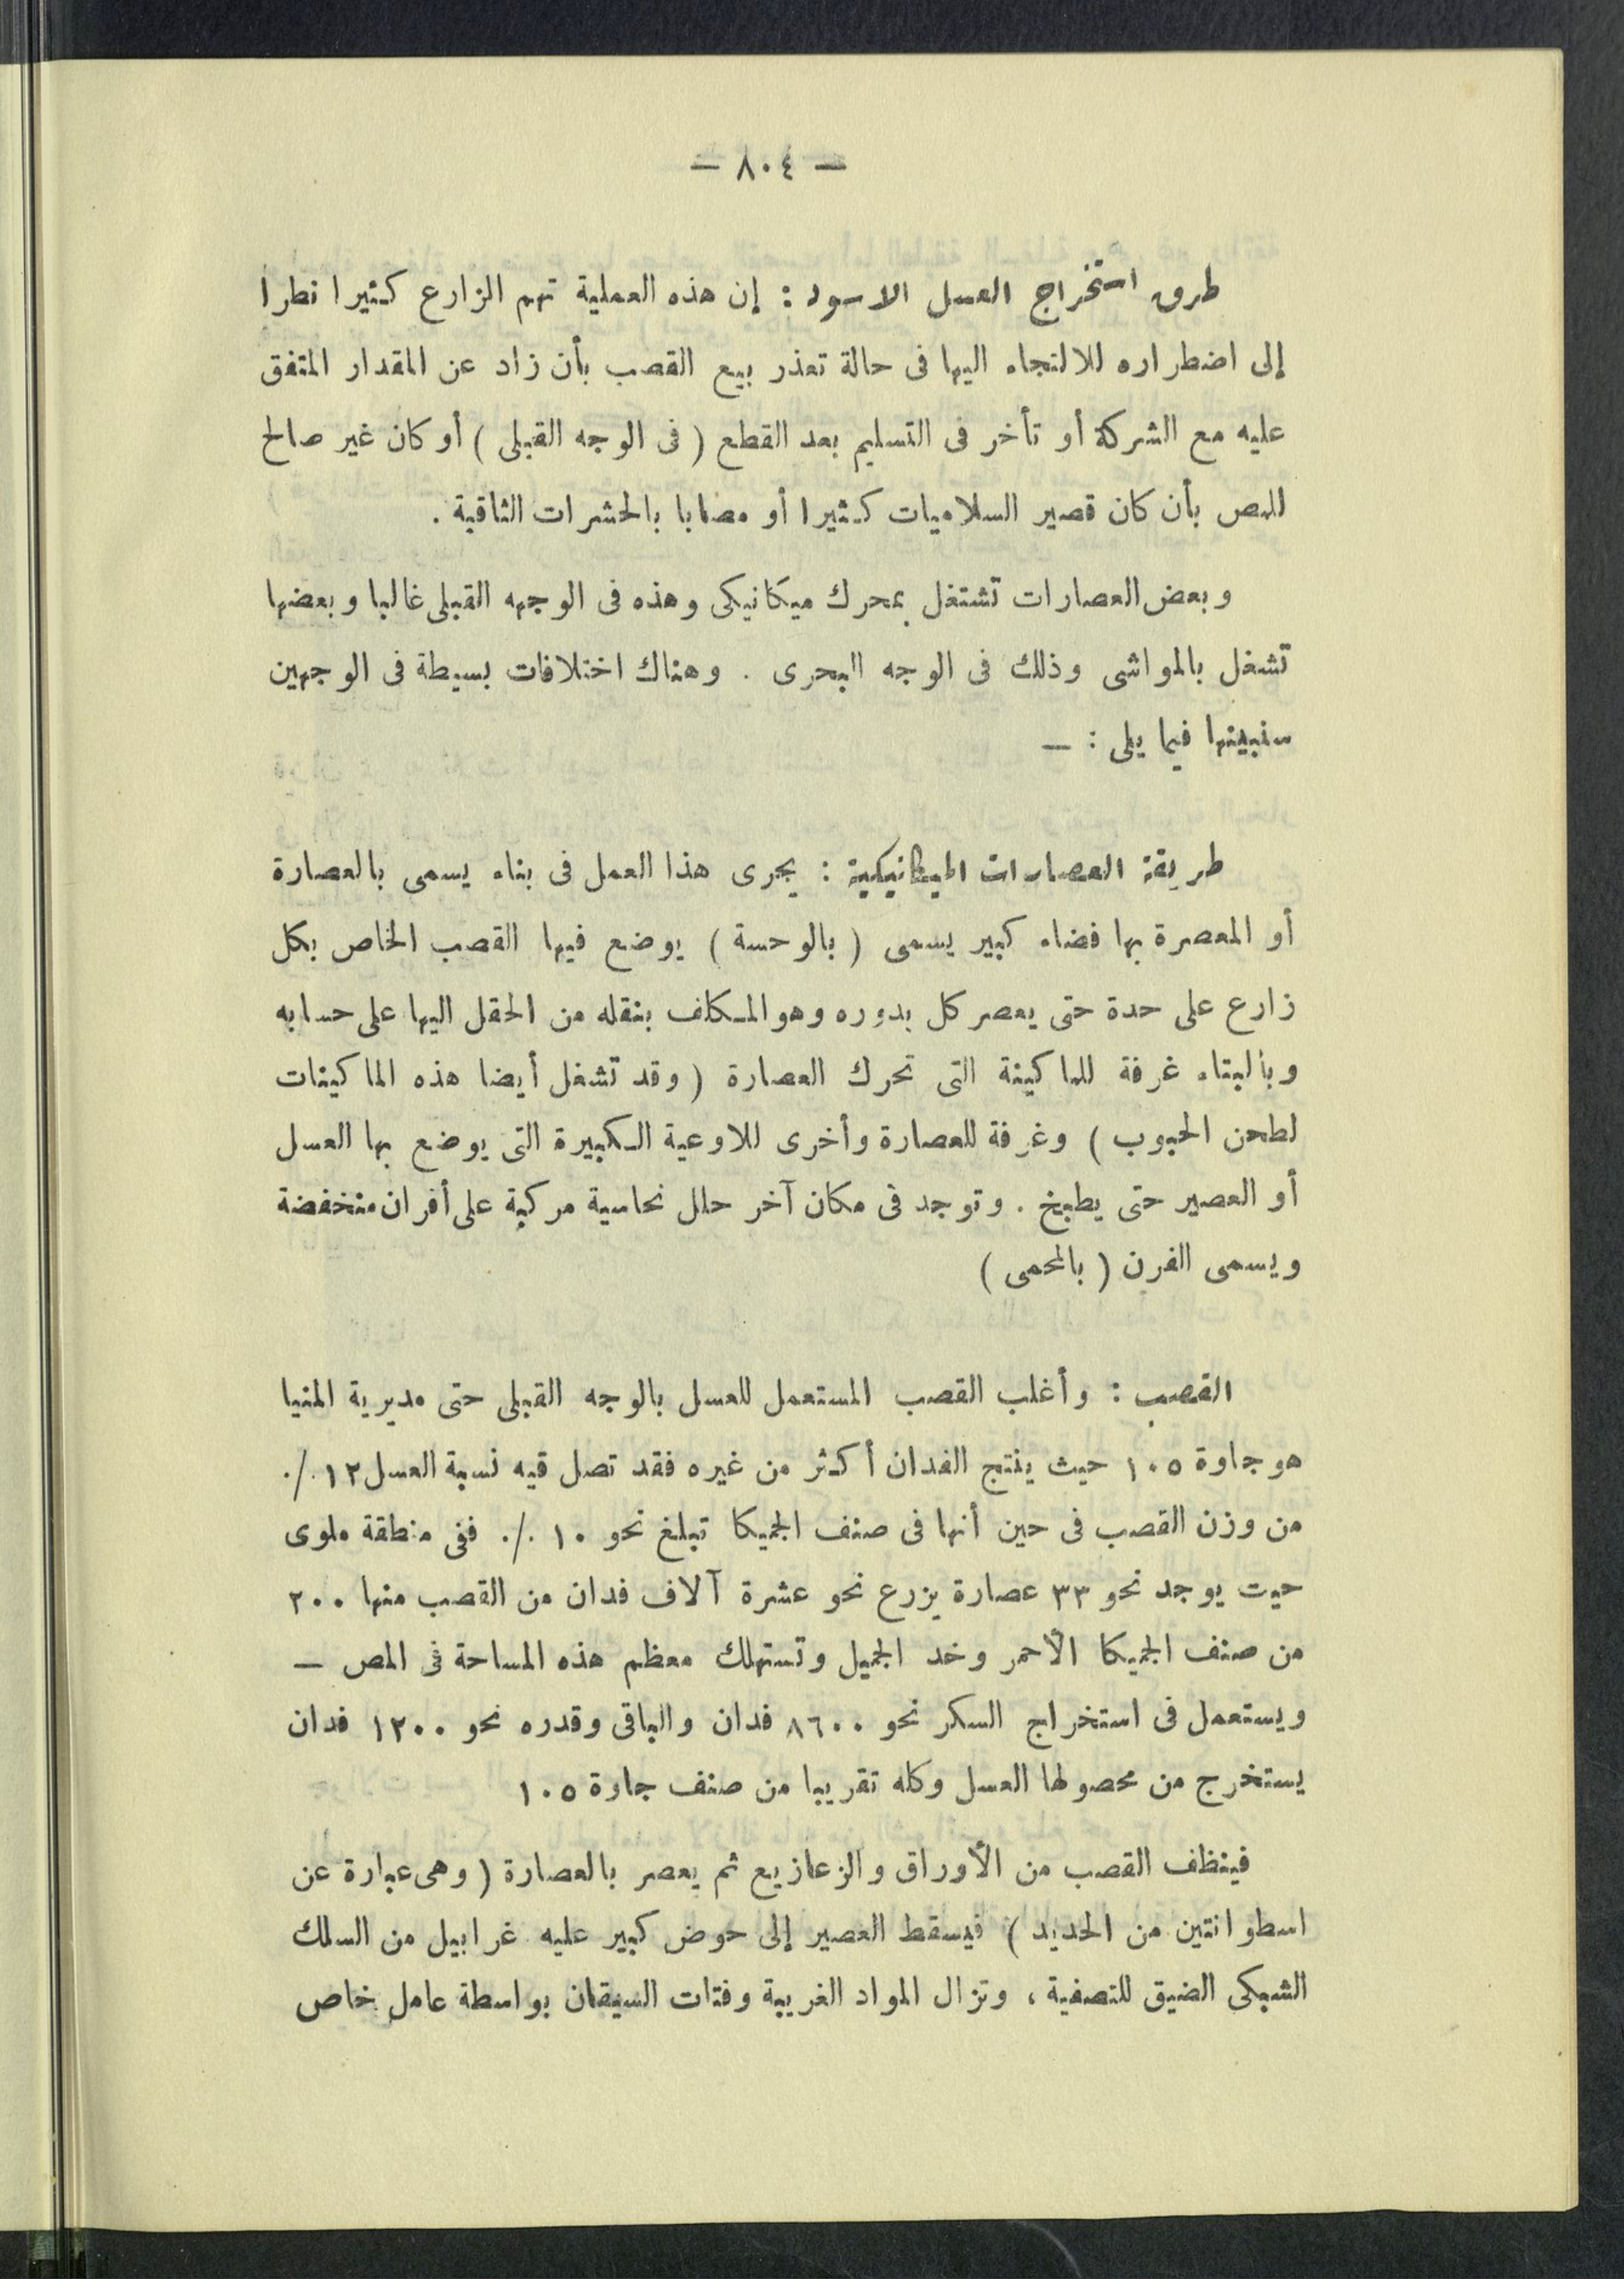 — ٨٠٤ —
طرق استخراج العسل الاسود : إن هذه العملية تهم الزارع كثيرا نظرا
إلى اضطراره للالتجاء اليها فى حالة تعذر بيع القصب بأن زاد عن المقدار المتفق
عليه مع الشركة أو تأخر فى التسليم بعد القطع ( فى الوجه القبلى ) أو كان غير صالح
للمص بأن كان قصير السلاميات كثيرا أو مصابا بالحشرات الثاقبة .
وبعض العصارات تشتغل بمحرك ميكانيكى وهذه فى الوجهه القبلى غالبا وبعضها
تشغل بالمواشى وذلك فى الوجه البحرى . وهناك اختلافات بسيطة فى الوجهين
سنبينها فيما يلى : —
طريقة العصارات الميكانيكية : يجرى هذا العمل فى بناء يسمى بالعصارة
أو المعصرة بها فضاء كبير يسمى ( بالوحسة ) يوضع فيها القصب الخاص بكل
زارع على حدة حتى يعصر كل بدوره وهو المكلف بنقله من الحقل اليها على حسابه
وبالبناء غرفة للماكينة التى تحرك العصارة ( وقد تشغل أيضا هذه الماكينات
لطحن الحبوب ) وغرفة للعصارة وأخرى للاوعية الكبيرة التى يوضع بها العسل
أو العصير حتى يطبخ . وتوجد فى مكان آخر حلل نحاسية مركبة على أفران منخفضة
ويسمى الفرن ( بالمحمى )
القصب : وأغلب القصب المستعمل للعسل بالوجه القبلى حتى مديرية المنيا
هو جاوة ١٠٥ حيث ينتج الفدان أكثر من غيره فقد تصل قيه نسبة العسل ١٢ ٪
من وزن القصب فى حين أنها فى صنف الجميكا تبلغ نحو ١٠ ٪ ففى منطقة ملوى
حيت يوجد نحو ٣٣ عصارة يزرع نحو عشرة آلاف فدان من القصب منها ٢٠٠
من صنف الجميكا الأحمر وخد الجميل وتستهلك معظم هذه المساحة فى المص —
ويستعمل فى استخراج السكر نحو ٨٦٠٠ فدان والباقى وقدره نحو ١٢٠٠ فدان
يستخرج من محصولها العسل وكله تقريبا من صنف جاوة ١٠٥
فينظف القصب من الأوراق والزعازيع ثم يعصر بالعصارة ( وهى عبارة عن
اسطوانتين من الحديد ) فيسقط العصير إلى حوض كبير عليه غرابيل من السلك
الشبكى الضيق للتصفية ، وتزال المواد الغريبة وفتات السيقان بواسطة عامل خاص